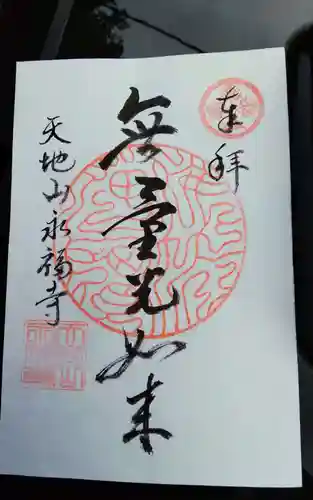 奉拝
無量光如来
天地山永福寺